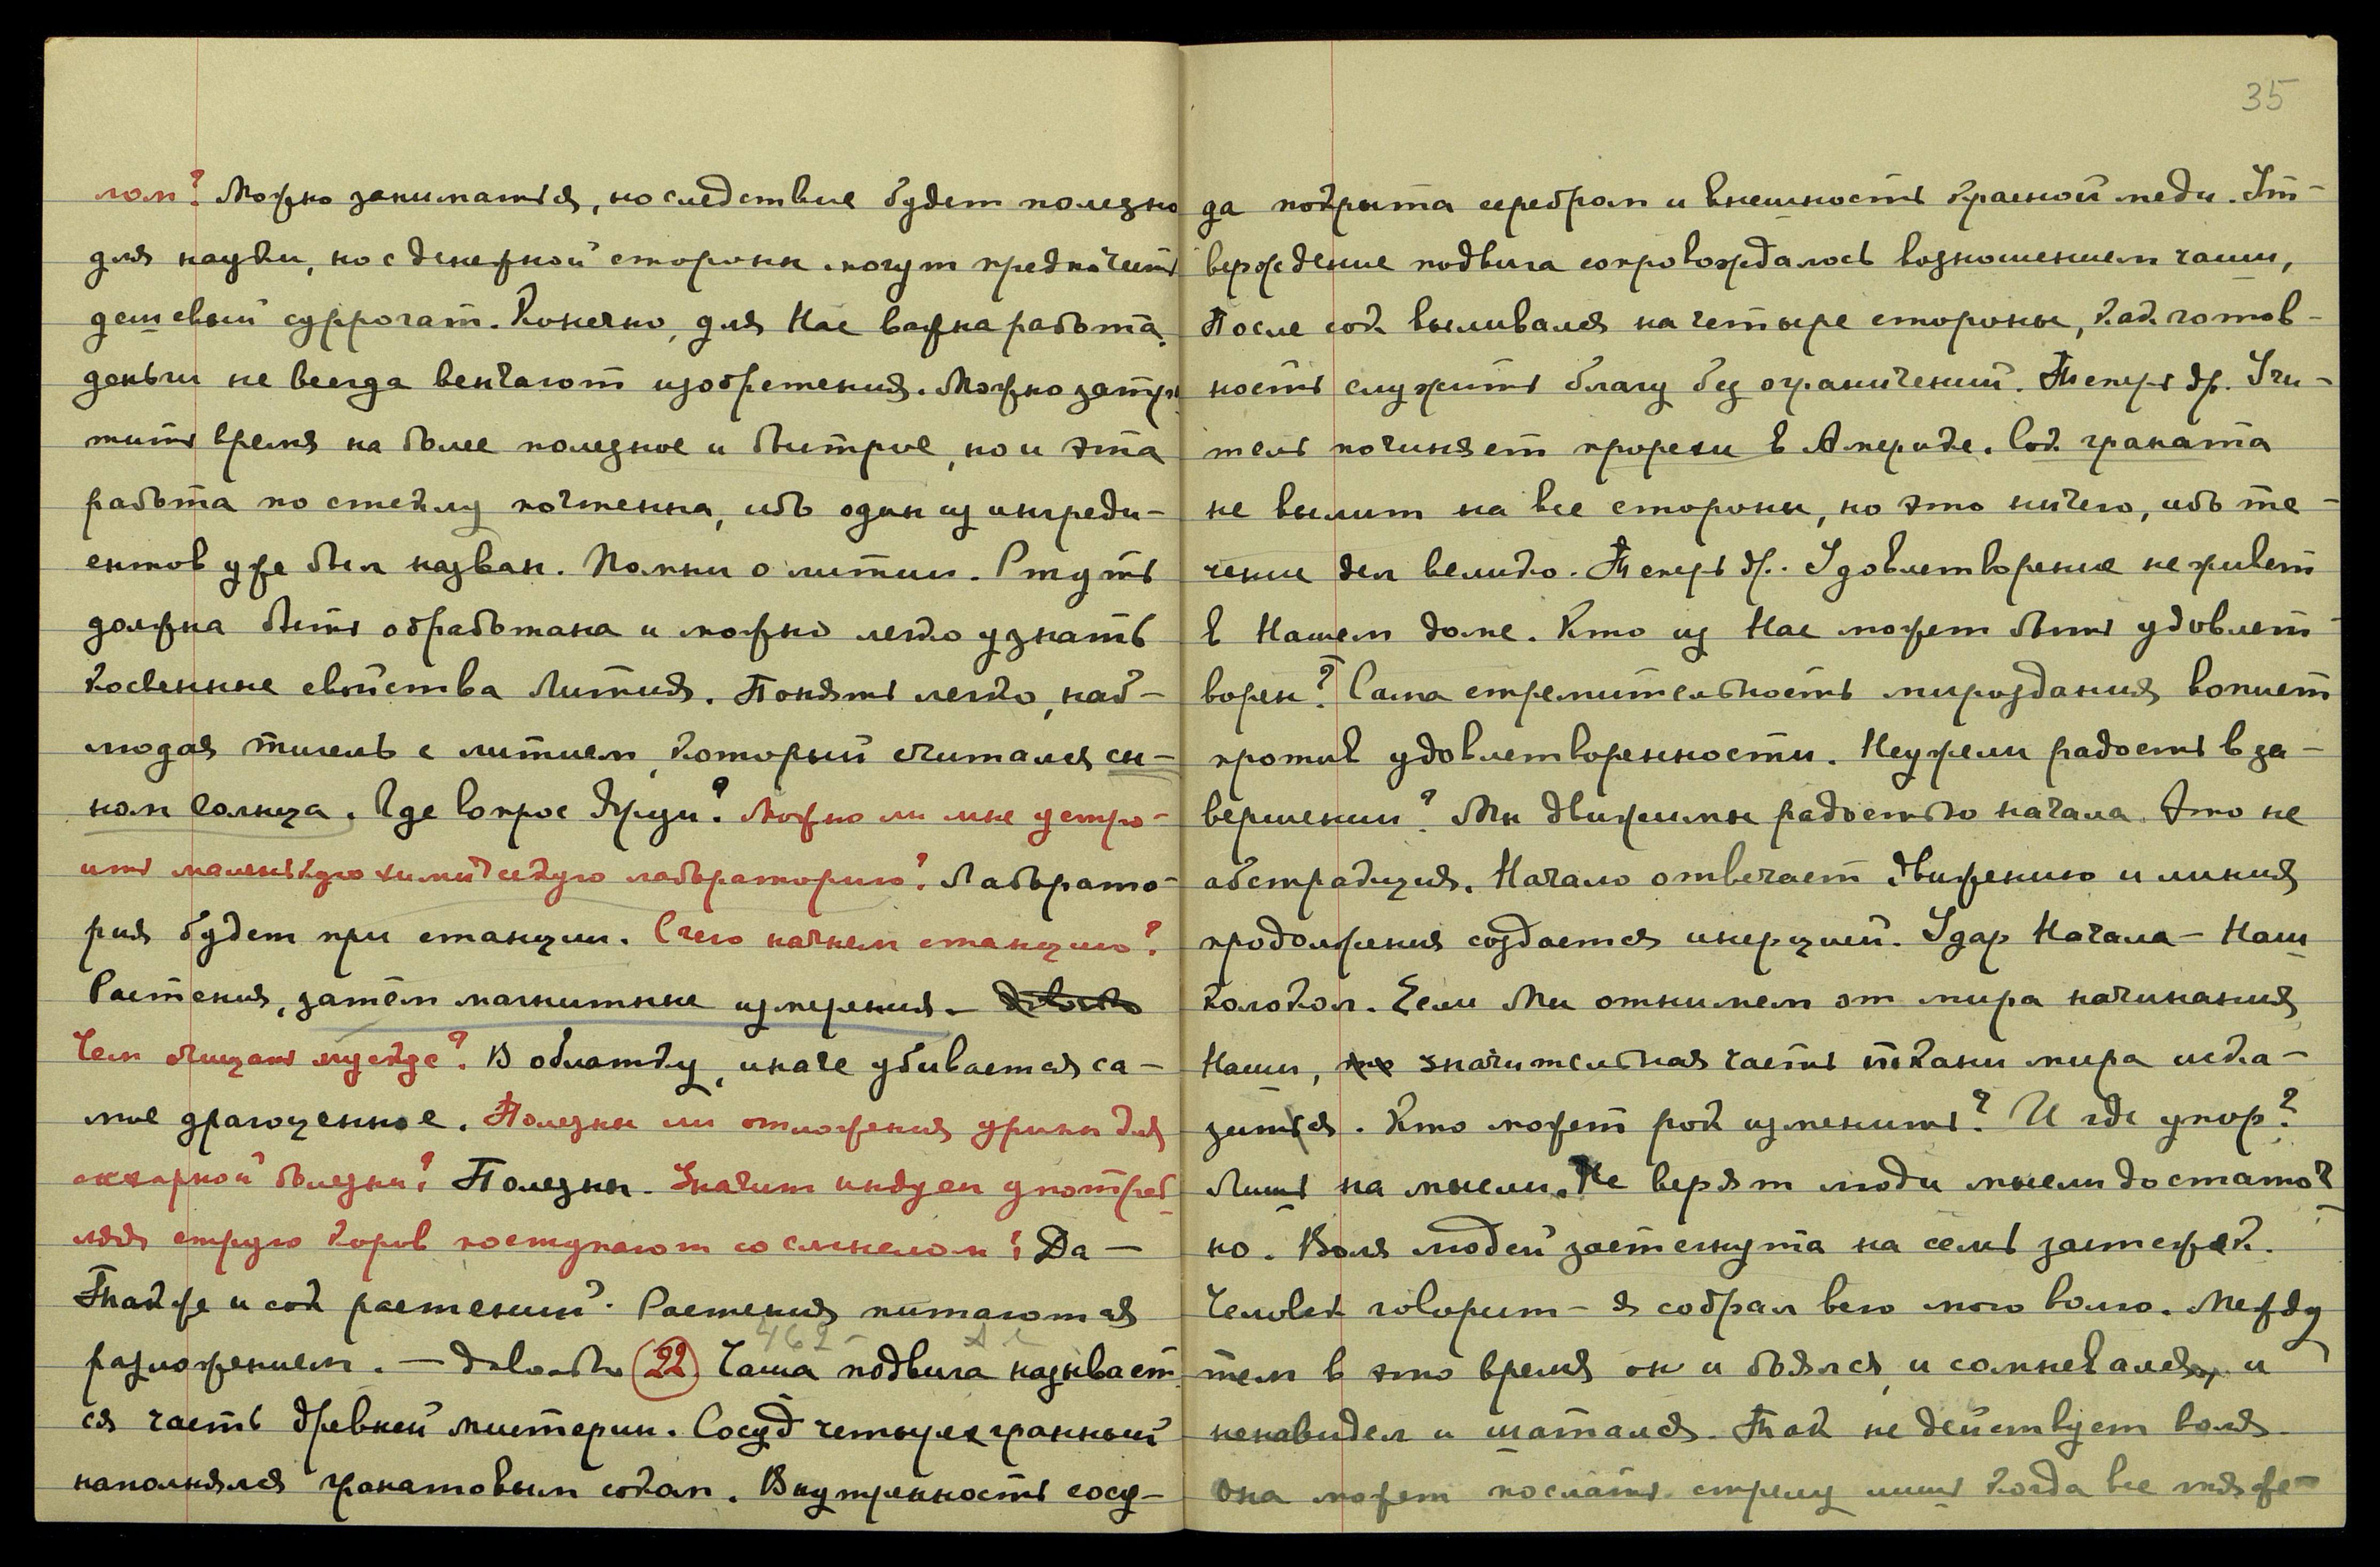 лом? Можно заниматься, но следствие будет полезно
для науки, но с денежной стороны могут предпочесть
дешевый суррогат. Конечно, для Нас важна работа.
деньги не всегда венчают изобретения. Можно затра
тить время на более полезное и быстрое, но и эта
работа по стеклу почтенна, ибо один из ингреди-
ентов уже был назван. Помни о литии. Ртуть
должна быть обработана и можно легко узнать
косвенные свойства Лития. Понять легко, наб-
людая тигель с литием, который считался сы-
ном Солнца. Где вопрос Яруи? Можно ли мне устро-
ить маленькую химическую лабораторию? Лаборато-
рия будет при станции. С чего начнем станцию?
Растения, затем магнитные измерения.
Чем очищать мускус? В облатку, иначе убивается са-
мое драгоценное. Полезны ли отложения урины для
сахарной болезни? Полезны. Значит индусы употреб
ляя струю коров поступают со смыслом? Да —
Также и сок растений. Растения питаются
разложением. — довольно (22) Чаша подвига называет
462
ся часть древней мистерии. Сосуд четырехгранный
наполнялся гранатовым соком. Внутренность сосу-
35
да покрыта серебром и внешность красной меди. Ут-
верждение подвига сопровождалось возношением чаши,
После сок выливался на четыре стороны, как готов-
ность служить благу без ограничений. Теперь др. Учи-
тель починяет прорехи в Америке. Сок граната
не вылит на все стороны, но это ничего, ибо те-
чение дел велико. Теперь др. Удовлетворение не живет
в Нашем доме. Кто из Нас может быть удовлет-
ворен? Сама стремительность мироздания вопиет
против удовлетворенности. Неужели радость в за-
вершении? Мы движимы радостью начала. Это не
абстракция. Начало отвечает движению и линия
продолжения создается инерцией. Удар Начала — Наш
колокол. Если Мы отнимем от мира начинания
Наши, значительная часть ткани мира иска-
зится. Кто может рок изменить? И где упор?
Лишь на мысли. Не верят люди мысли достаточ-
но. Воля людей застегнута на семь застежек.
Человек говорит — я собрал всю мою волю. Между
тем в это время он и боялся, и сомневался, и
ненавидел и шатался. Так не действует воля.
Она может послать стрелу лишь когда все тяже-